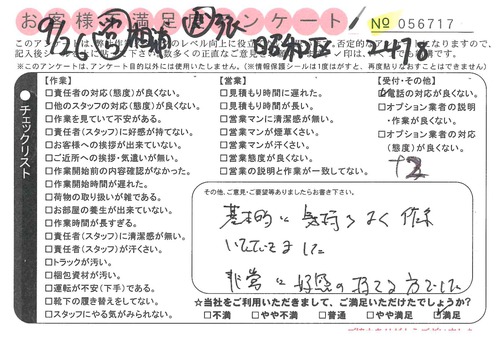 お客様満足度アンケート
No 056717
※このアンケートは、アンケート目的以外には使用いたしません。(※情報保護シールは1度はがすと、再度貼りなおすことはできません)
チェックリスト
【作業】
□責任者の対応(態度)が良くない。
□他のスタッフの対応(態度)が良くない。
□作業を見ていて不安がある。
□責任者(スタッフ)に好感が持てない。
□お客様への挨拶が出来ていない。
□ご近所への挨拶・気遣いが無い。
□作業開始前の内容確認がなかった。
□作業開始時間が遅れた。
□荷物の取り扱いが雑である。
□お部屋の養生が出来ていない。
□作業時間が長すぎる。
□責任者(スタッフ)に清潔感が無い。
□責任者(スタッフ)が汗くさい。
□トラックが汚い。
□梱包資材が汚い。
□運転が不安(下手)である。
□靴下の履き替えをしてない。
□スタッフにやる気がみられない。
【営業】
□見積もり時間に遅れた。
□見積もり時間が長い。
□営業マンに清潔感が無い。
□営業マンが煙草くさい。
□営業マンが汗くさい。
□営業態度が良くない。
□営業の説明と作業が一致してない。
【受付・その他】
□電話の対応が良くない。
□オプション業者の説明・作業が良くない。
□オプション業者の対応(態度)が良くない。
その他、ご意見・ご要望等ありましたらお書き下さい。
基本的に気持ちよく作業
いただきました
非常に好感の持てる方でした
☆当社をご利用いただきまして、ご満足いただけたでしょうか?
□不満 □やや不満 □普通 □やや満足 □満足